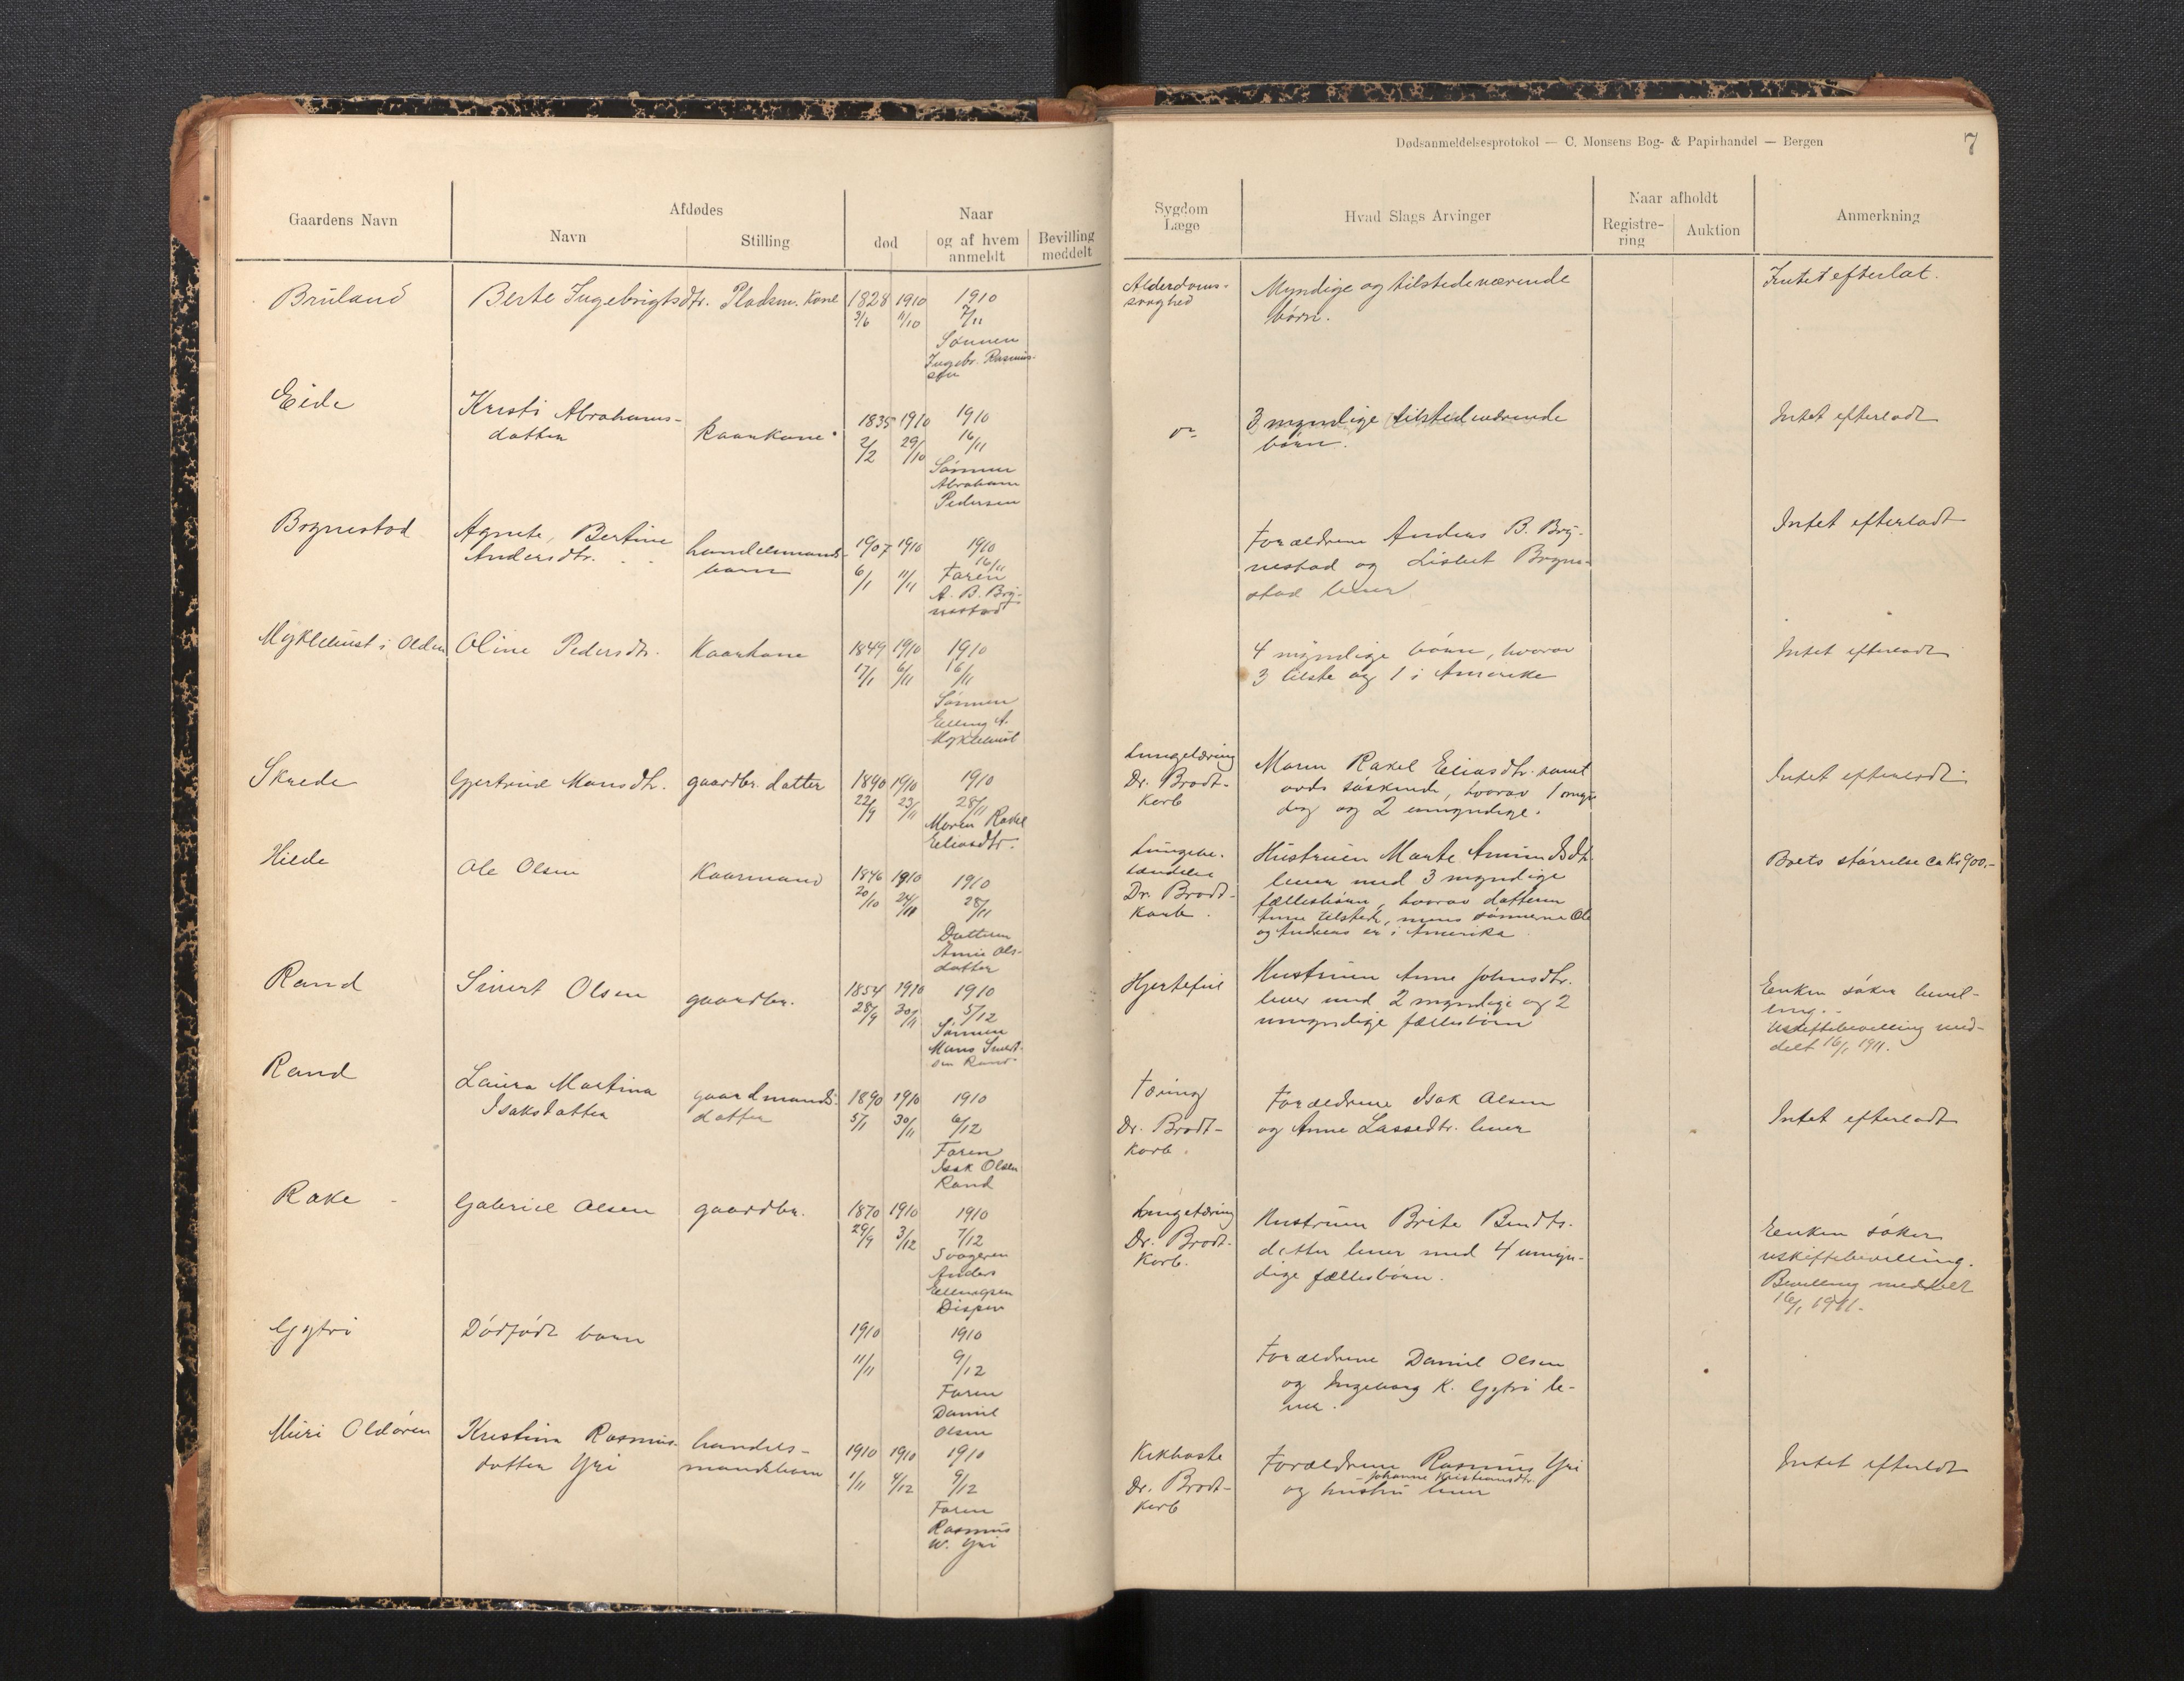 Dødsanmeldelsesprotokol — C. Monsens Bog- & Papirhandel — Bergen
7
Gaardens Navn
Afdødes
Navn
Stilling
Naar
død
og af hvem anmeldt
Bevilling meddelt
Sygdom Læge
Hvad Slags Arvinger
Naar afholdt
Registre-
ring
Auktion
Anmerkning
Bruland
Berte Ingebrigtsdtr.
Pladsm. Kone
1828 3/6
1910 11/10
1910
7/11
Sønnen
Ingebr. Rasmus-
sen
Alderdoms-
svaghed
Myndige og tilstedeværende
børn.
Intet efterlat.
Eide
Kristi Abrahams-
datter
Kaarkone
1835 2/2
1910 29/10
1910
16/11
Sønnen
Abraham
Pedersen
3 myndige tilstedeværende
børn.
Intet efterladt
Brynestad
Agnete, Bertine
Andersdtr.
handelsmands-
barn
1907 6/1
1910 11/11
1910
16/11
Faren
A. B. Bry-
nestad
Forældrene Anders B. Bry-
nestad og Lisbet Bryne-
stad lever
Intet efterladt
Myklebust i Olden
Oline Pedersdtr.
Kaarkone
1849 17/1
1910 6/11
1910
16/11
Sønnen
Elling A.
Myklebust
4 myndige børn, hvorav
3 tilste og 1 i Amerika
Intet efterladt
Skrede
Gjertrud Monsdtr.
gaardbr. datter
1890 22/9
1910 23/11
1910
28/11
Moren Rakel
Eliasdtr.
Lungetæring
Dr. Brodt-
korb
Moren Rakel Eliasdtr. samt
avds søskende, hvorav 1 myn
dig og 2 umyndige.
Intet efterladt
Hilde
Ole Olsen
Kaarmand
1846 20/10
1910 24/11
1910
28/11
Datteren
Anne Ols-
datter
Lungebe-
tændelse
Dr. Brodt-
korb.
Hustruen Marte Amundsdtr.
lever med 3 myndige
fællesbørn, hvorav datteren
Anne tilstede, mens sønnerne Ole
og Andreas er i Amerika
Boets størrelse ca Kr 900.-
Rand
Sivert Olsen
gaardbr.
1854 28/9
1910 30/11
1910
5/12
Sønnen
Mons Sivert-
sen Rand
Hjertefeil
Hustruen Anne Johnsdtr.
lever med 2 myndige og 2
umyndige fællesbørn
Enken søker bevil-
ling.
Uskiftebevilling med-
delt 16/1 1911.
Rand
Laura Martina
Isaksdatter
gaardmands-
datter
1890 5/1
1910 30/11
1910
6/12
Faren
Isak Olsen
Rand
Tæring
Dr. Brodt-
korb.
Forældrene Isak Olsen
og Anne Lassedtr. lever
Intet efterladt
Rake
Gabriel Olsen
gaardbr.
1870 29/9
1910 3/12
1910
7/12
Svogeren
Anders
Ellingsen
Lungetæring
Dr. Brodt-
korb.
Hustruen Brite Bendts-
datter lever med 4 umyn-
dige fællesbørn.
Enken søker
uskiftebevilling.
Bevilling meddelt
16/1 1911.
Gytri
Dødfødt barn
1910
11/11
1910
9/12
Faren
Daniel
Olsen
Forældrene Daniel Olsen
og Ingeborg K. Gytri le-
ver.
Muri Oldøren
Kristina Rasmus-
datter Yri
handels-
mandsbarn
1910 1/11
1910 4/12
1910
9/12
Faren
Rasmus
W. Yri
Kikhoste
Dr. Brodt-
korb
Forældrene Rasmus Yri
- Johanne Kristiansdtr.
og hustru lever
Intet efterldt